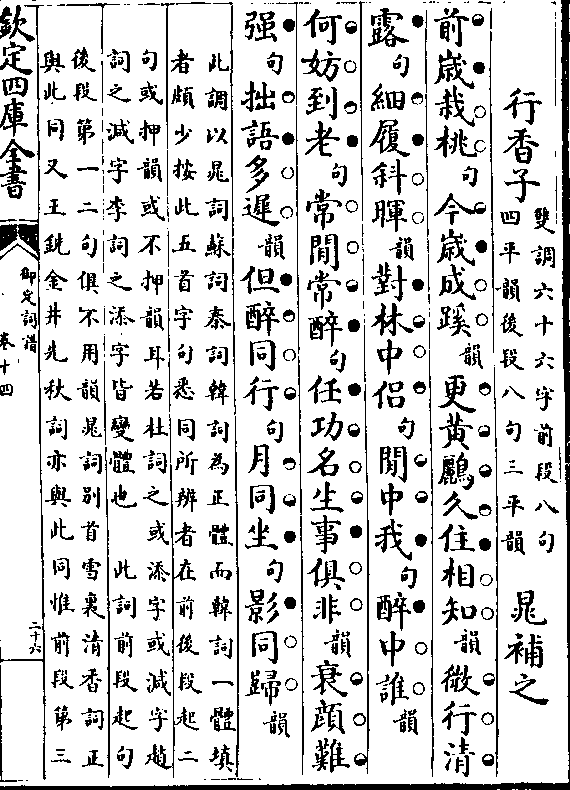 行香子 雙調六十六字前段八句四平韻後段八句三平韻 晁補之
前歲栽桃句今歲成蹊韻更黃鸝久住相知韻微行清
露句細履斜暉韻對林中侶句閒中我句醉中誰韻
何妨到老句常閒常醉句任功名生事俱非韻衰顔難
强句拙語多遲韻但醉同行句月同坐句影同歸韻
此調以晁詞蘇詞秦詞韓詞為正體而韓詞一體填
者頗少按此五首字句悉同所辨者在前後段起二
句或押韻或不押韻耳若杜詞之或添字或減字趙
詞之減字李詞之添字皆變體也 此詞前段起句
後段第一二句俱不用韻晁詞别首雪裏清香詞正
與此同又王詵金井先秋詞亦與此同惟前段第三
欽定四庫全書
御定詞譜
卷十四
二十六